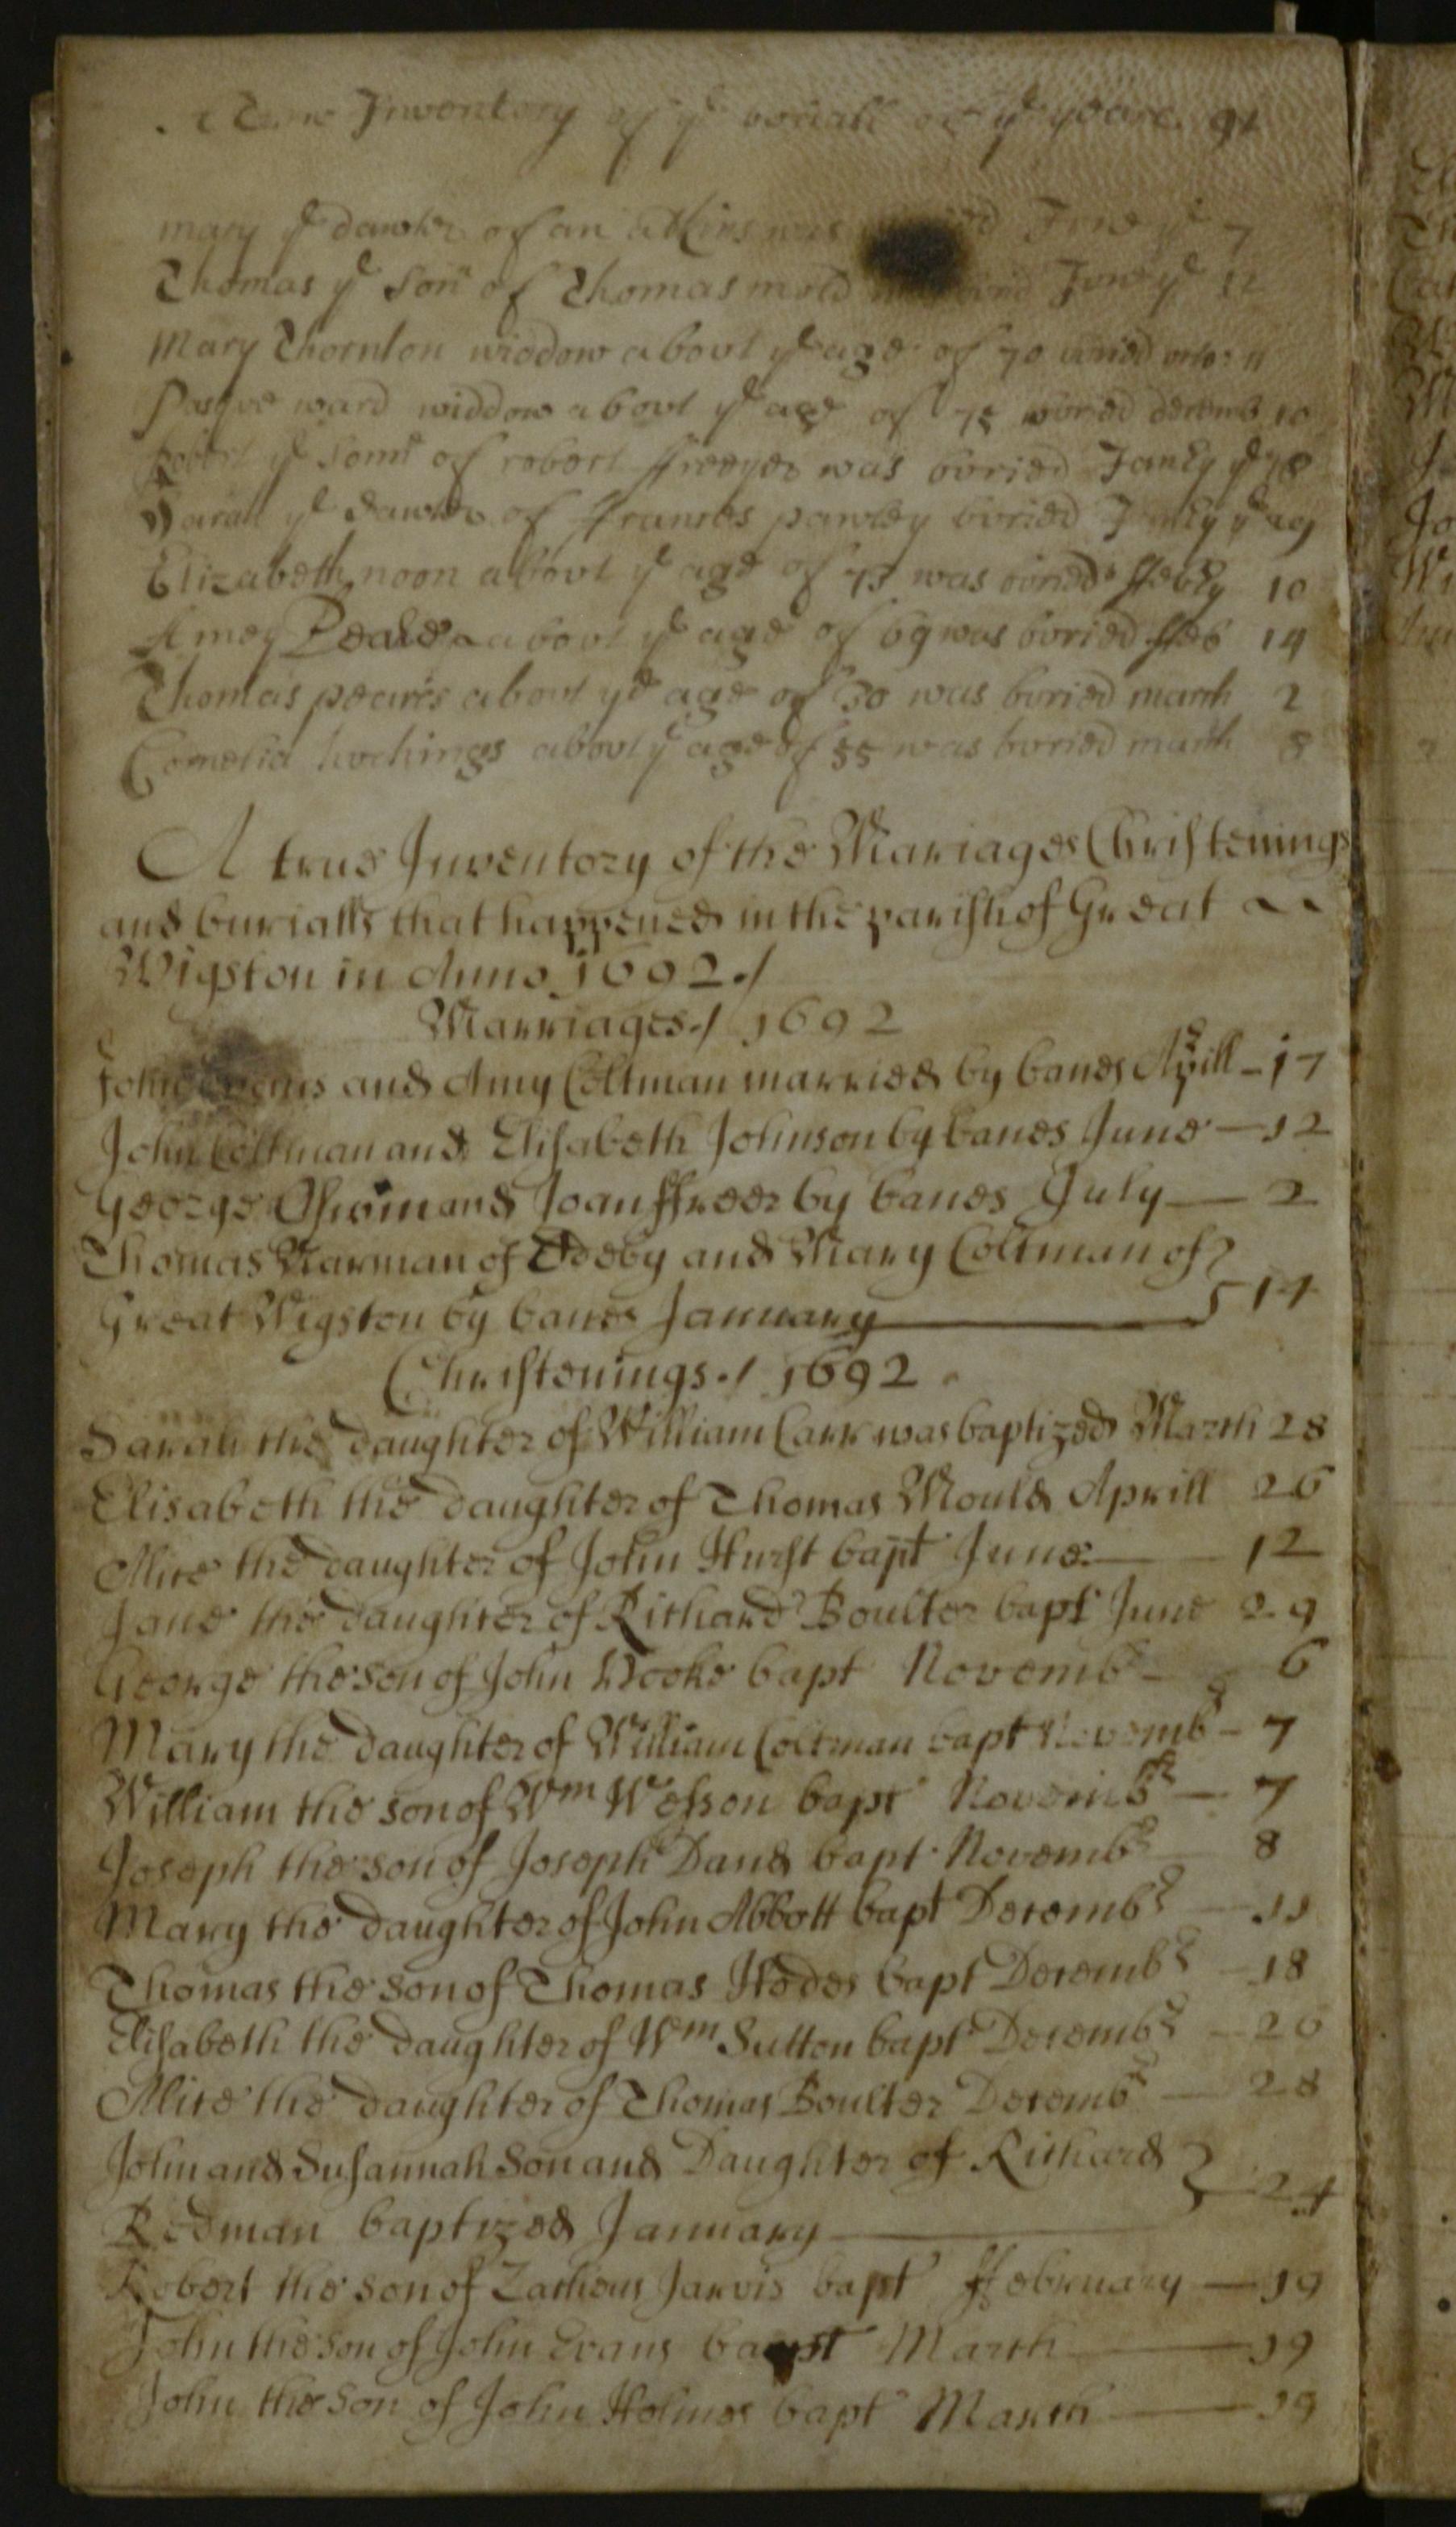 A true Inventory of ye boriall of ye yeare 91
mary ye dawter of an atkins was Jvne ye 7
Thomas ye Son of Thomas mold Jvne ye 12
Mary Thornton widdow abovt ye age of 70 11
Pasqve ward widdow abovt ye age of 75 boried decemb 10
Robert ye sonn of robert ffreeyer was boried Janey ye 28
Sarah ye dawter of ffrances pawley boried Janey ye 29
Elizabeth noon abovt ye age of 73 was boried ffebey 10
Amey abovt ye age of 69 was boried ffeb 14
Thomas peares abovt ye age of 30 was boried march 2
Cornelia hvchings abovt ye age of 55 was boried march 8
A true Inventory of the Mariages Christenings
and burialls that happened in the parish of Great
Wigston in Anno 1692./
Marriages./ 1692
John and Amy Coltman married by banes Aprill - 17
John Coltman and Elisabeth Johnson by banes June - 12
George and Joan ffreer by banes July - 2
Thomas Marman of Odeby and Mary Coltman of
Great Wigston by banes January } 14
Christenings./ 1692
Sarah the daughter of William Carr was baptized March 28
Elisabeth the daughter of Thomas Mould Aprill 26
Alice the daughter of John Hurst bapt June - 12
Jane the daughter of Richard Boulter bapt June 29
George the son of John Hooke bapt Novembr - 6
Mary the daughter of William Coltman bapt Novembr - 7
William the son of Wm Wesson bapt Novembr - 7
Joseph the son of Joseph Dand bapt Novembr 8
Mary the daughter of John Abbott bapt Decembr - 11
Thomas the son of Thomas Hodes bapt Decembr - 18
Elisabeth the daughter of Wm Sutton bapt Decembr - 26
Alice the daughter of Thomas Boulter Decembr - 28
John and Susannah Son and Daughter of Richard
Redman baptized January } 24
Robert the son of Zacheus Jarvis bapt ffebruary - 19
John the son of John Evans bapt March - 19
John the son of John Holmes bapt March - 19